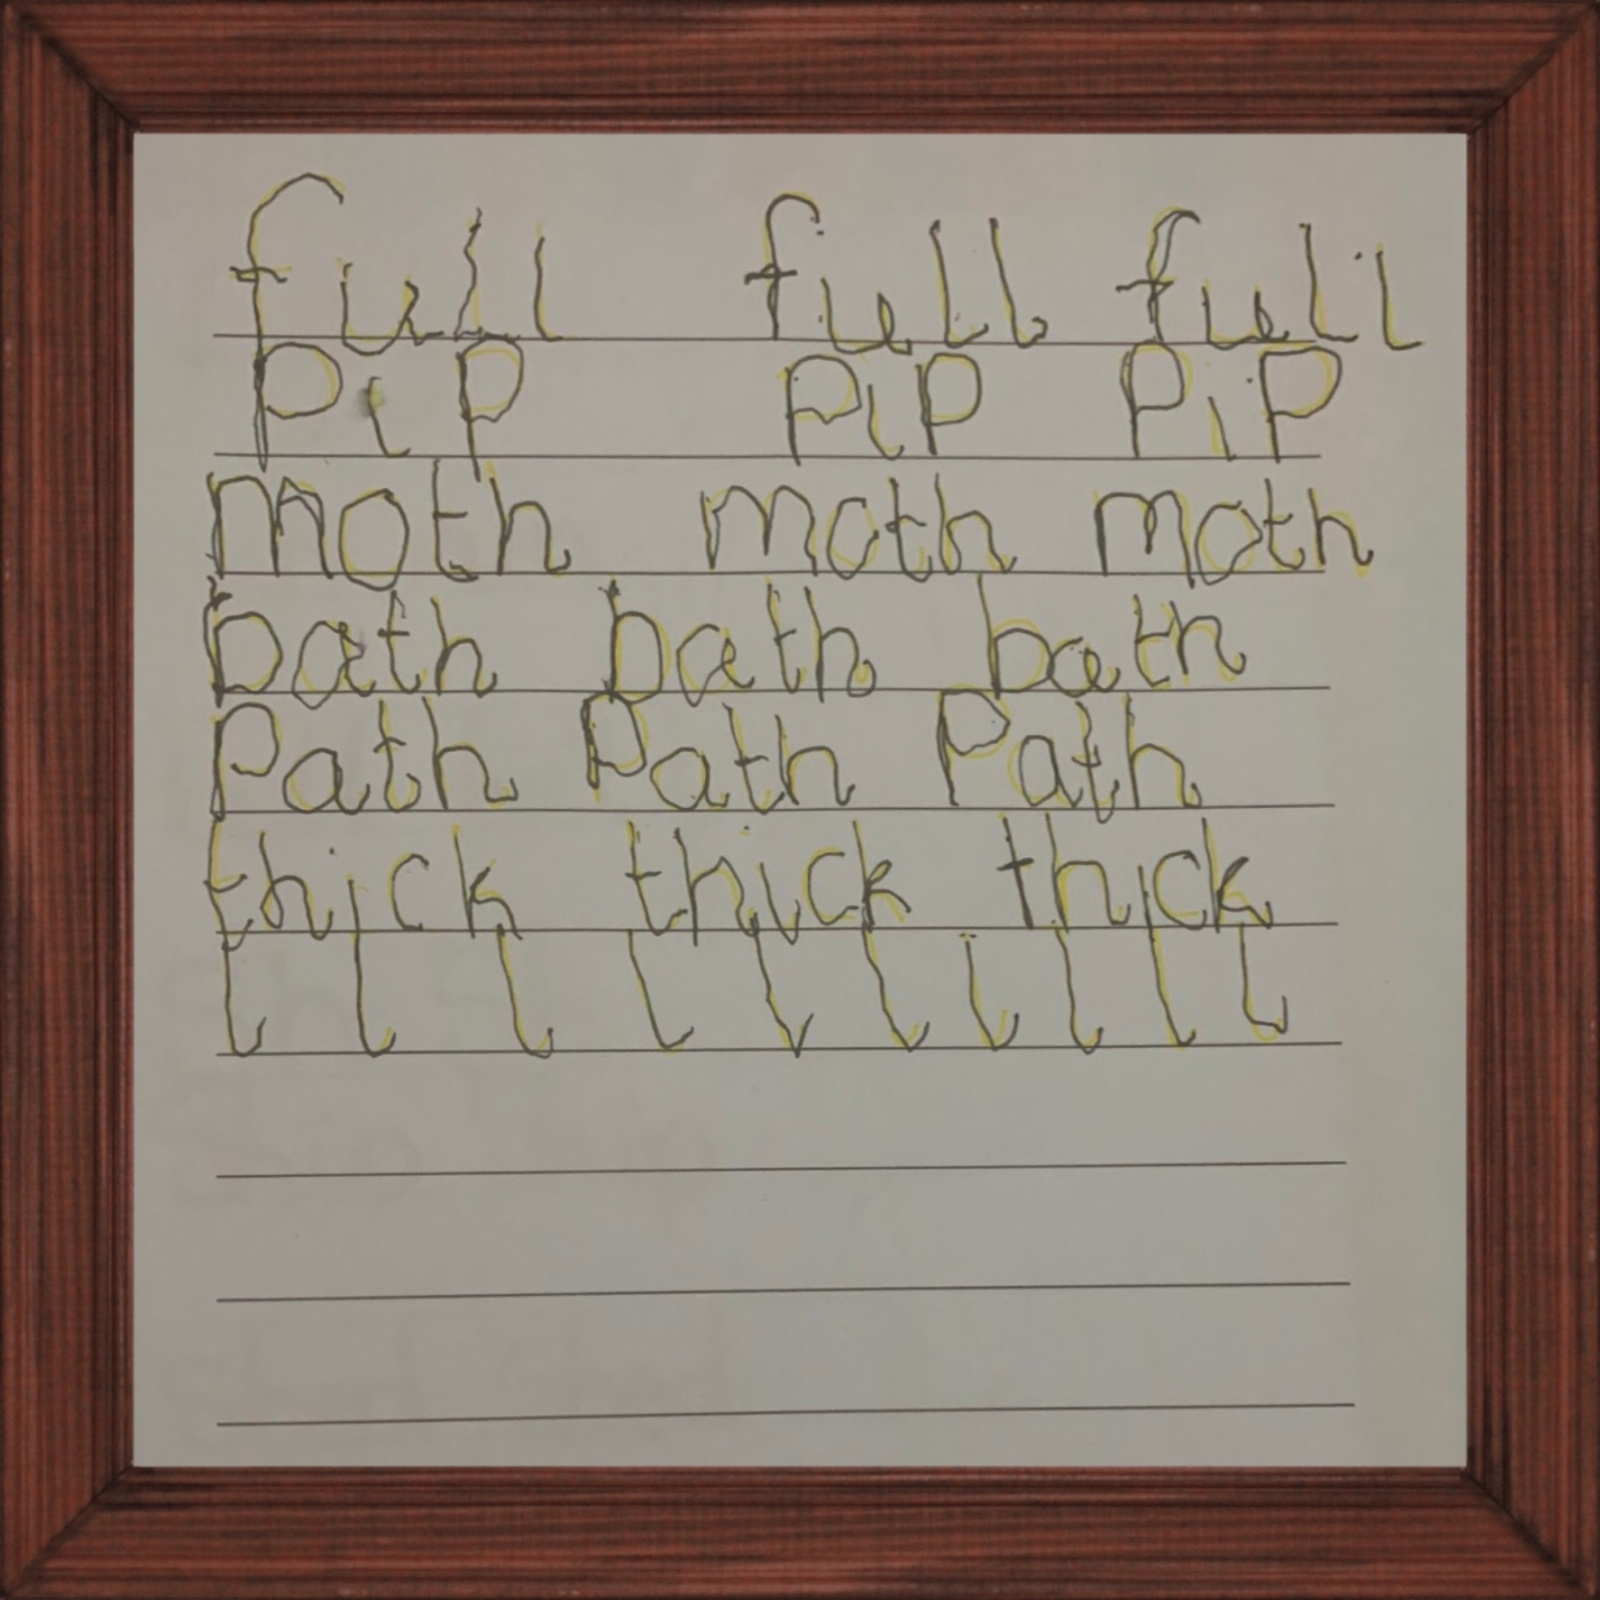 full full full
Pip Pip Pip
moth moth moth
bath bath bath
Path Path Path
thick thick thick
l l l l l l l l l l